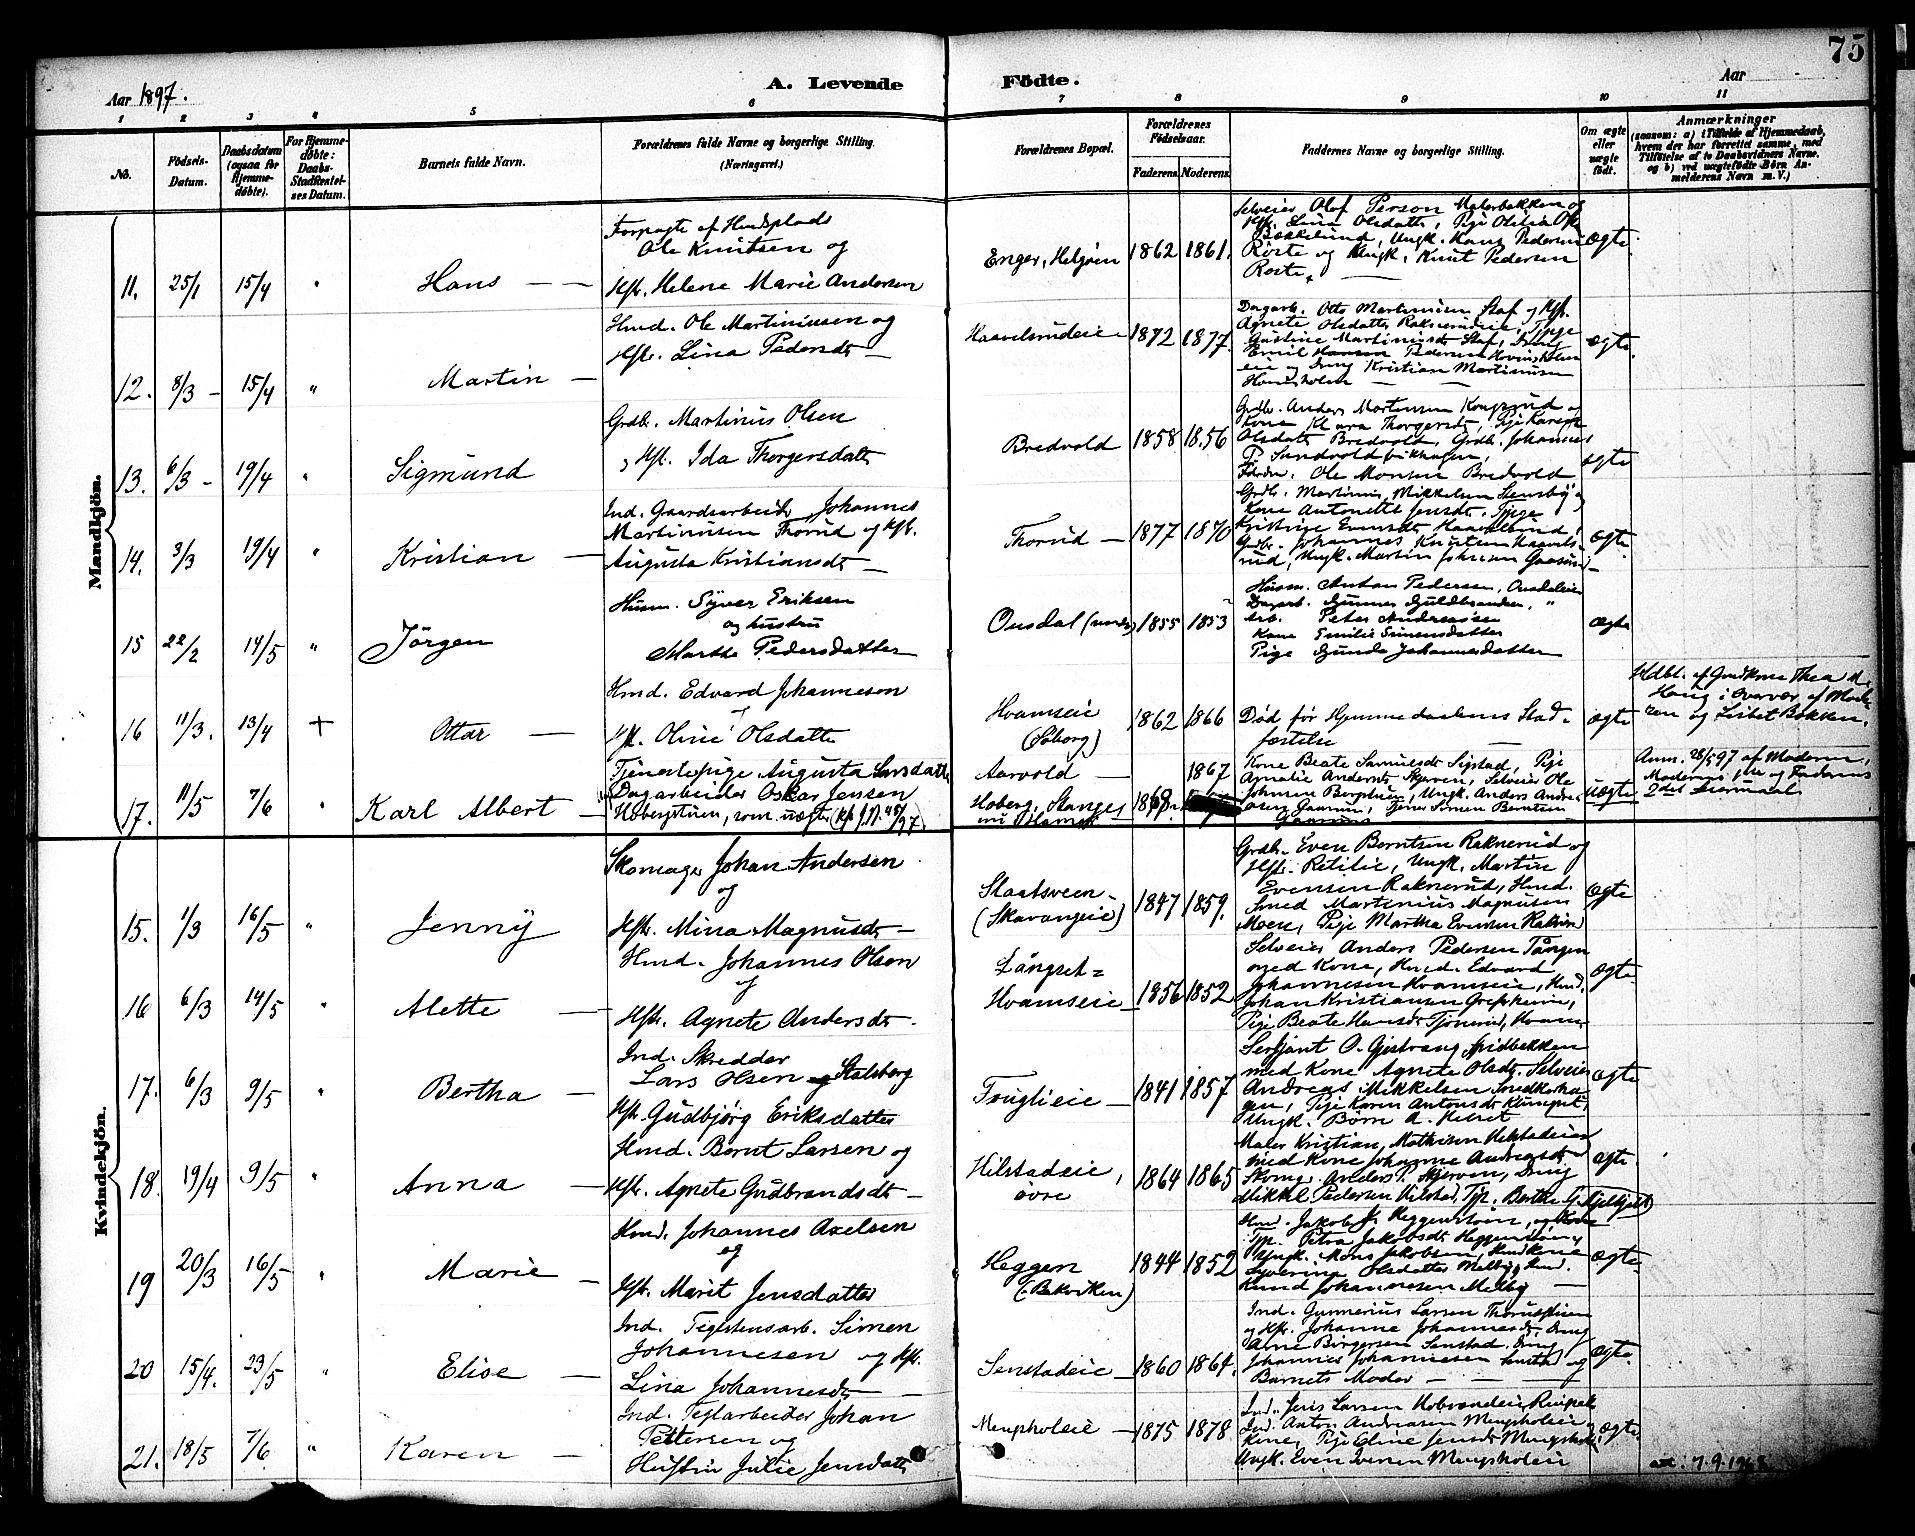 75
Aar 1897.
A. Levende Födte.
Aar
1 2 3 4 5 6 7 8 9 10 11
No.
Födsels-Datum.
Daabsdatum (ogsaa for Hjemmedøbte).
For Hjemmedøbte: Daabs-Stadfæstelses Datum.
Barnets fulde Navn.
Forældrenes fulde Navne og borgerlige Stilling. (Næringsvei.)
Forældrenes Bopæl.
Forældrenes Födselsaar.
Faderens. Moderens.
Faddernes Navne og borgerlige Stilling.
Om ægte eller uægte født.
Anmærkninger
(saasom: a) i Tilfælde af Hjemmedaab, hvem der har forrettet samme, med Tilføielse af to Daabsvidners Navne, og b) ved uægtefødte Børn Anmelderens Navn m. V.)
Mandkjön.
11. 25/1 15/4 " Hans
Ole Knutsen og
Hst. Helene Marie Andersen
Enger, Helgøien 1862 1861.
Selveier Olaf Person Malerbakken og
Hst. Lina Olsdatt, Pige
Bækkelund, Ungk. Hans Pedersen
Røste og Ungk. Knut Pedersen
Røste
ægte
12. 8/3 15/4 " Martin
Hmd. Ole Martiniusen og
Hst. Lina Pedersdt
Haavelsrudeie 1872 1877.
Dagarb. Otto Martiniusen Staf og Hst.
Agnete Olsdatter Raknerudeie, Pige
Gustine Martiniusdt Staf, Ung
Emil Hansen Pedersen
eie og Ung Kristian Martinusen
ægte
13. 6/3 19/4 " Sigmund
Grdb. Martinius Olsen
Hst. Ida Thorgersdatt
Bredvold 1858 1856
Grdb. Anders Mortensen Kongsrud og
Kone Klara Thorgersdt, Pige Karen
Olsdatt Bredvold, Grdb. Johannes
P. Sandvold
Ole Monsen Bredvold
ægte
14. 3/3 19/4 " Kristian
Ind. Gaardsarbeider Johannes
Martiniusen Thorud og Hst.
Augusta Kristiansdt
Thorud 1877 1870
Grdb. Martinius Mikkelsen Stensby og
Kone Antonette Jensdt. Pige
Kristine Evensdt Haavelsrud,
Grdb. Johannes Knutsen Haavels-
rud, Ungk. Martin Johnsen
ægte
15 22/2 14/5 " Jörgen
Husm. Syver Eriksen
og hustru
Marthe Pedersdatter
Onsdal (under) 1855 1853
Husm. Anton Pedersen, Onsdaleie
Dagarb. Gunner Guldbrandsen, "
Arb. Peter Andreassen
Kone Emilie Simensdatter
Pige Gunda Johannesdatter
ægte
16 11/3. 13/4 + Ottar
Hmd. Edvard Johannesen
og
Hst. Oline Olsdatte
Hvamseie
(Soborg)
1862 1866
Død før Hjemmedaabens Stad-
fæstelse
ægte
Hdbt. af Gaardkone Thea M.
Haug i Overvær af Mod-
ren og Lisbet Bakken.
17. 11/5 7/6 " Karl Albert
Tjenestepige Augusta Larsdatte
Dagarbeider Oskar Jensen
Hobergstuen, som uægte
Aarvold 1867
Hoberg, Stange
1868
Kone Beate Samuelsdt Sigstad, Pige
Amalie Andersdt Skjerven, Selveier Ole
Johnsen Borgstuen, Ungk. Anders Andre-
uægte
Anm. 28/5 97 af Moderen,
Moderens 1ste og Faderens
2det Leiermaal
Kvindekjön.
15. 1/3 16/5 " Jenny
Skomager Johan Andersen
og
Hst. Mina Magnusdt
Staatsveen
(Skavangeie)
1847 1859.
Grdb. Even Berntsen Raknerud og
Hst. Retilie, Ungk. Martin
Evensen Raknerud, Hmd.
Smed Martinius Magnusen
Moen, Pige Martha Evensen Raknerud
ægte
16 6/3 14/5 " Alette
Hmd. Johannes Olsen
og
Hst. Agnete Andersdt
Långset=
Hvamseie
1856 1852
Selveier Anders Pedersen Tången
med Kone, Hmd. Edvard
Johannesen Hvamseie, Hmd.
Johan Kristiansen Grefsheim,
Pige Beate Hansdt Tjönerud, Hvam
ægte
17. 6/3 9/5 " Bertha
Ind. Skrædder
Lars Olsen Stalsberg og
Hst. Gudbjörg Eriksdatter
Fouglieie 1841 1857
Serjant O. Gjestvang, Hvidbekken
med Kone Agnete Olsdt. Selveier
Andreas Mikkelsen Smedkerha-
gen, Pige Karen Antonsdt
Ungk. Børn A.
ægte
18. 19/4 9/5 " Anna
Hmd. Bernt Larsen og
Hst. Agnete Gudbrandsdt
Hilstadeie,
øvre
1864 1865
Maler Kristian Mathisen Hilstadeie
med Kone Johanne Andreasdt
Skomg. Anders P. Skjerven, Ung
Mikkel Pedersen Hilstad, Tjp. Berthe
ægte.
19 20/3 16/5 " Marie
Hmd. Johannes Axelsen
og
Hst. Marit Jensdatter
Heggen
(Bakviken)
1844 1852
Hmd. Jakob J. Heggenstøen, og Kone
Tjp. Petra Jakobsdt Heggenstøen,
Ungk. Mons Jakobsen, Hmdkone
Syverine Olsdatter Melby, Hmd.
Knud Johannesen Melby
ægte
20 15/4. 23/5 " Elise
Ind. Teglstensarb. Simen
Johannesen og Hst.
Lina Johannesdt
Senstadeie 1860 1864.
Ind. Gunnerius Larsen Thorudstuen
og Hst. Johanne Johannesdt, Ung
Arne Børgersen Senstad, Ung
Johannes Johannesen Senstad og
Barnets Moder
ægte.
21. 18/5 7/6. " Karen
Ind. Teglarbeider Johan
Pettersen og
Hustru Julie Jensdatt
Mengsholeie 1875 1878
Ind. Jens Larsen
Ind. Anton Andreasen Mengsholeie
Kone, Pige Eline Jensdt Mengshol
Ungk. Even Iversen Mengsholeie
ægte.
att: 7.9.1968